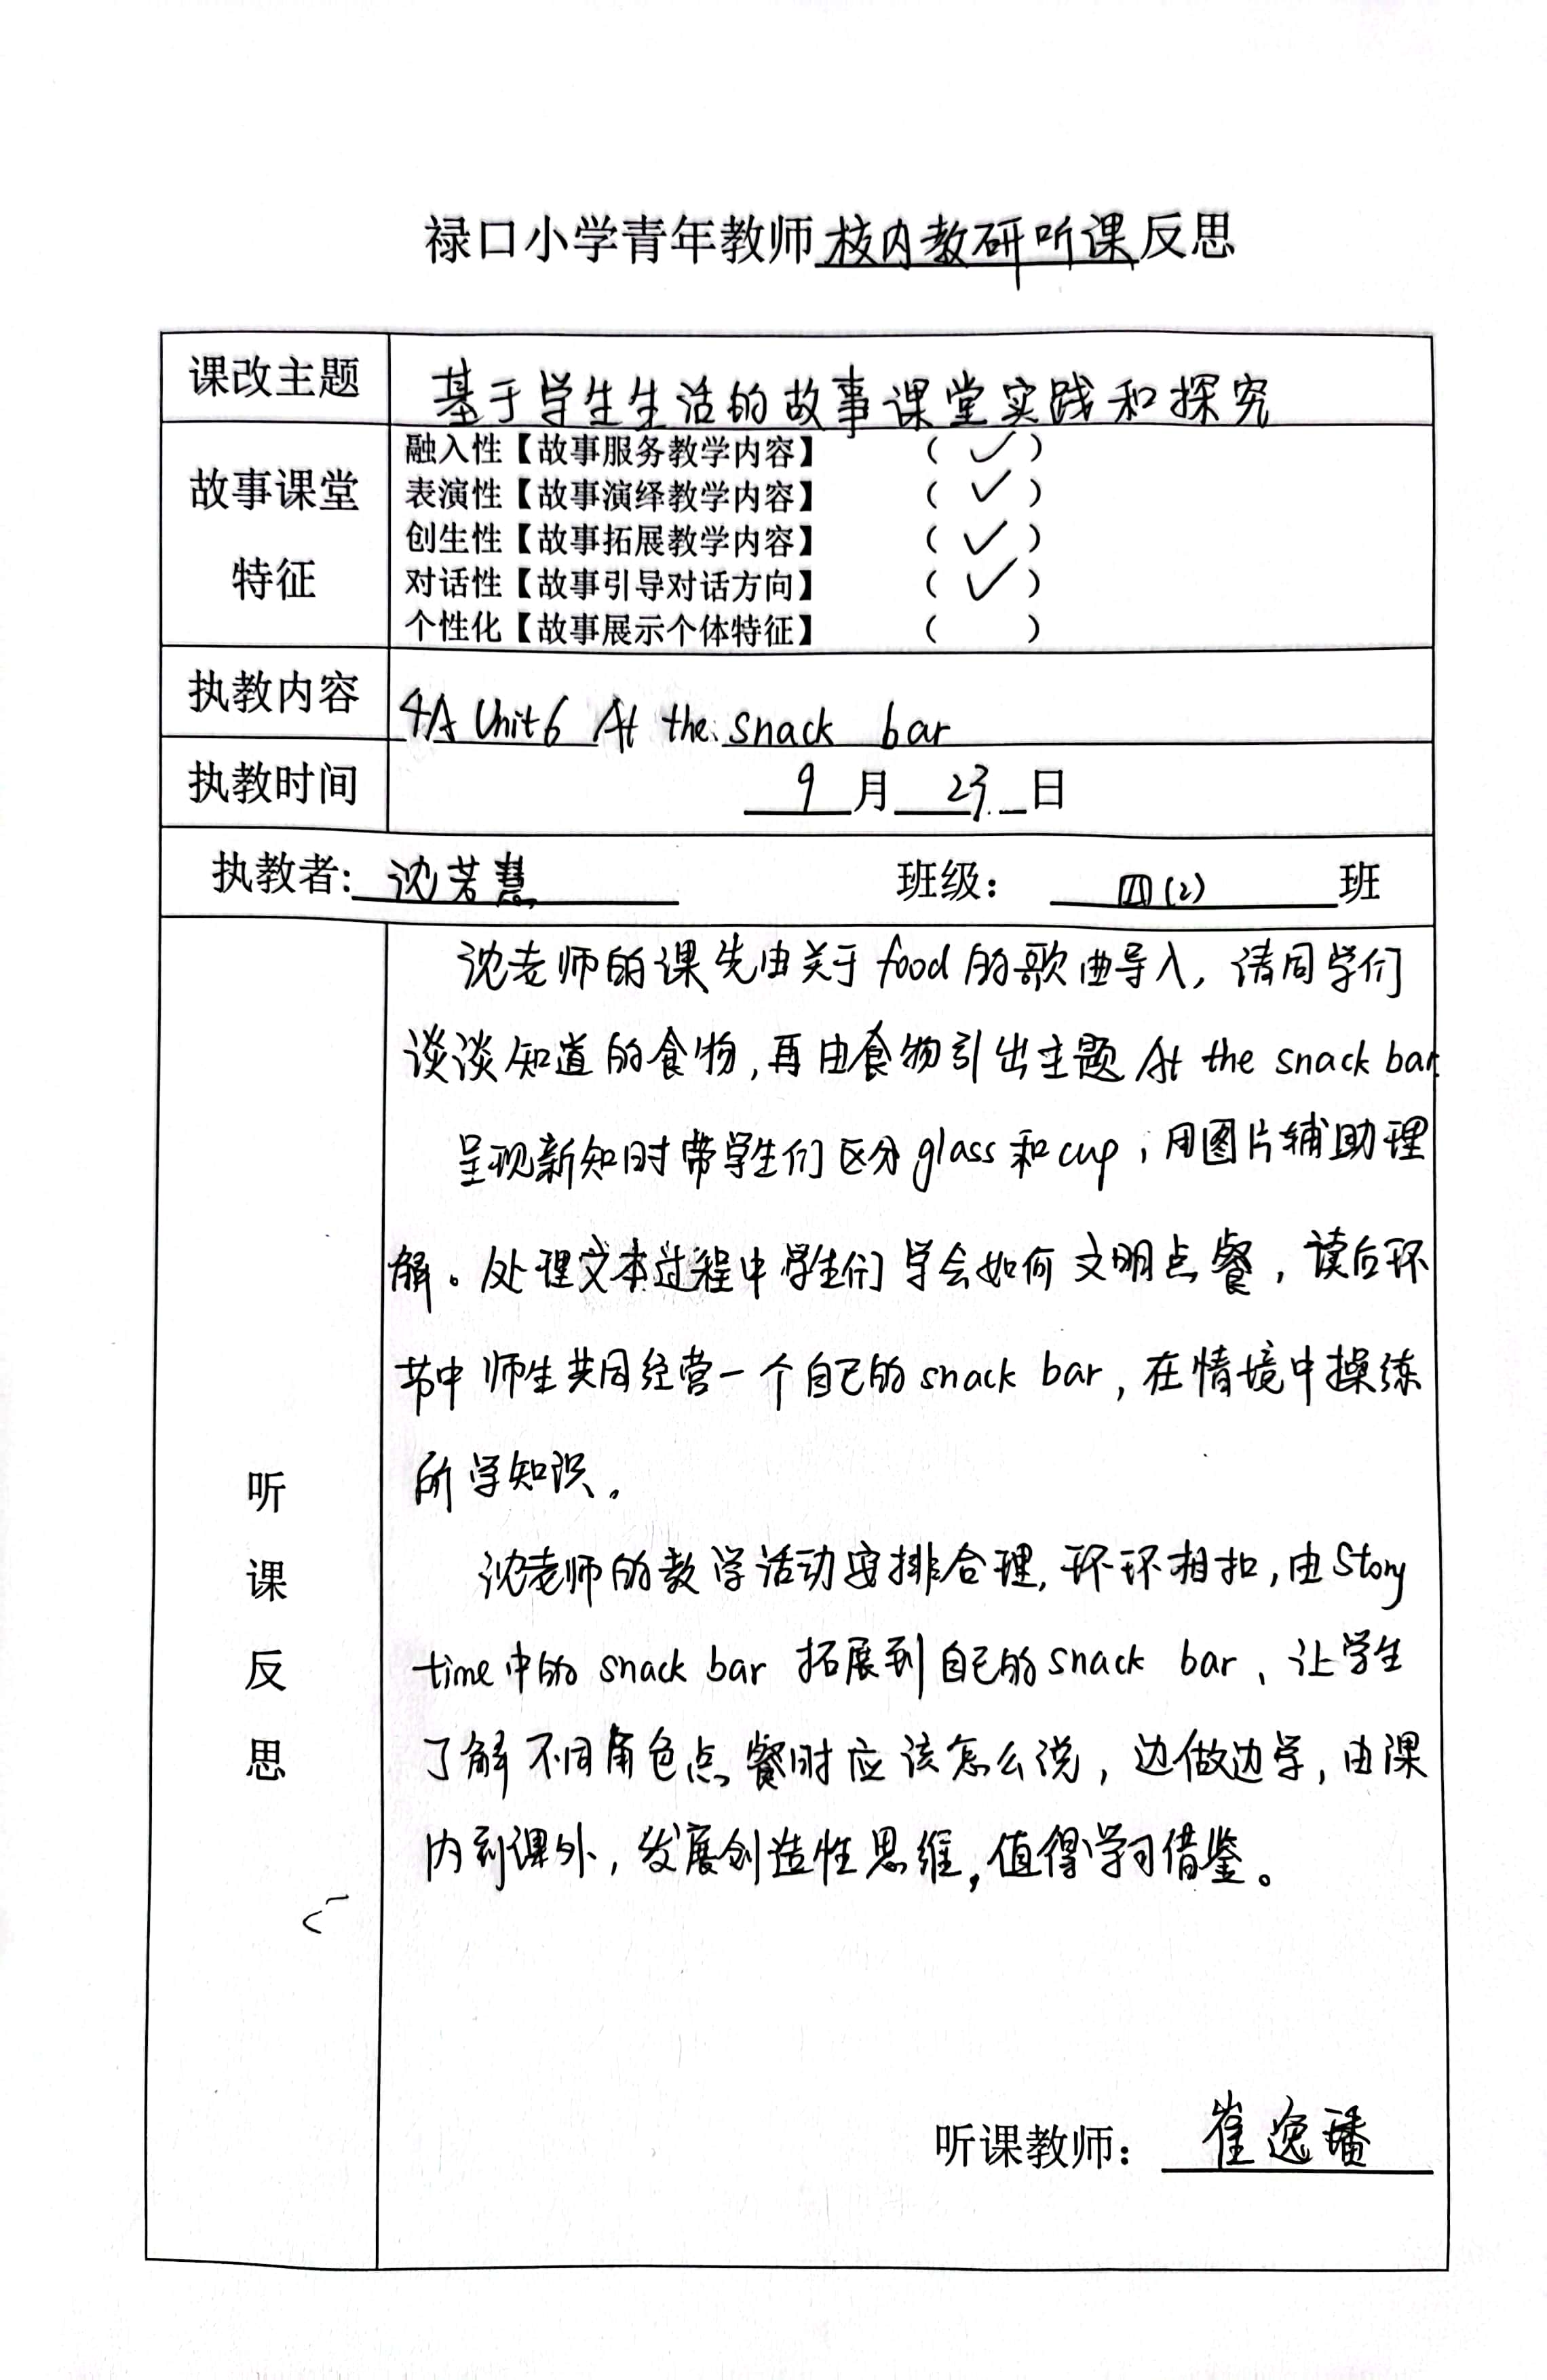 禄口小学青年教师校内教研听课反思
课改主题 基于学生生活的故事课堂实践和探究
故事课堂特征
融入性【故事服务教学内容】 (✓)
表演性【故事演绎教学内容】 (✓)
创生性【故事拓展教学内容】 (✓)
对话性【故事引导对话方向】 (✓)
个性化【故事展示个体特征】 ( )
执教内容 4A Unit6 At the snack bar
执教时间 9月23日
执教者: 沈若慧 班级: 四(2)班
听课反思
沈老师的课先由关于food的歌曲导入，请同学们
谈谈知道的食物，再由食物引出主题At the snack bar.
呈现新知时带学生们区分glass和cup，用图片辅助理
解。处理文本过程中学生们学会如何文明点餐，读后环
节中师生共同经营一个自己的snack bar，在情境中操练
所学知识。
沈老师的教学活动安排合理，环环相扣，由Story
time中的snack bar拓展到自己的snack bar，让学生
了解不同角色点餐时应该怎么说，边做边学，由课
内到课外，发展创造性思维，值得学习借鉴。
听课教师: 崔逸璠